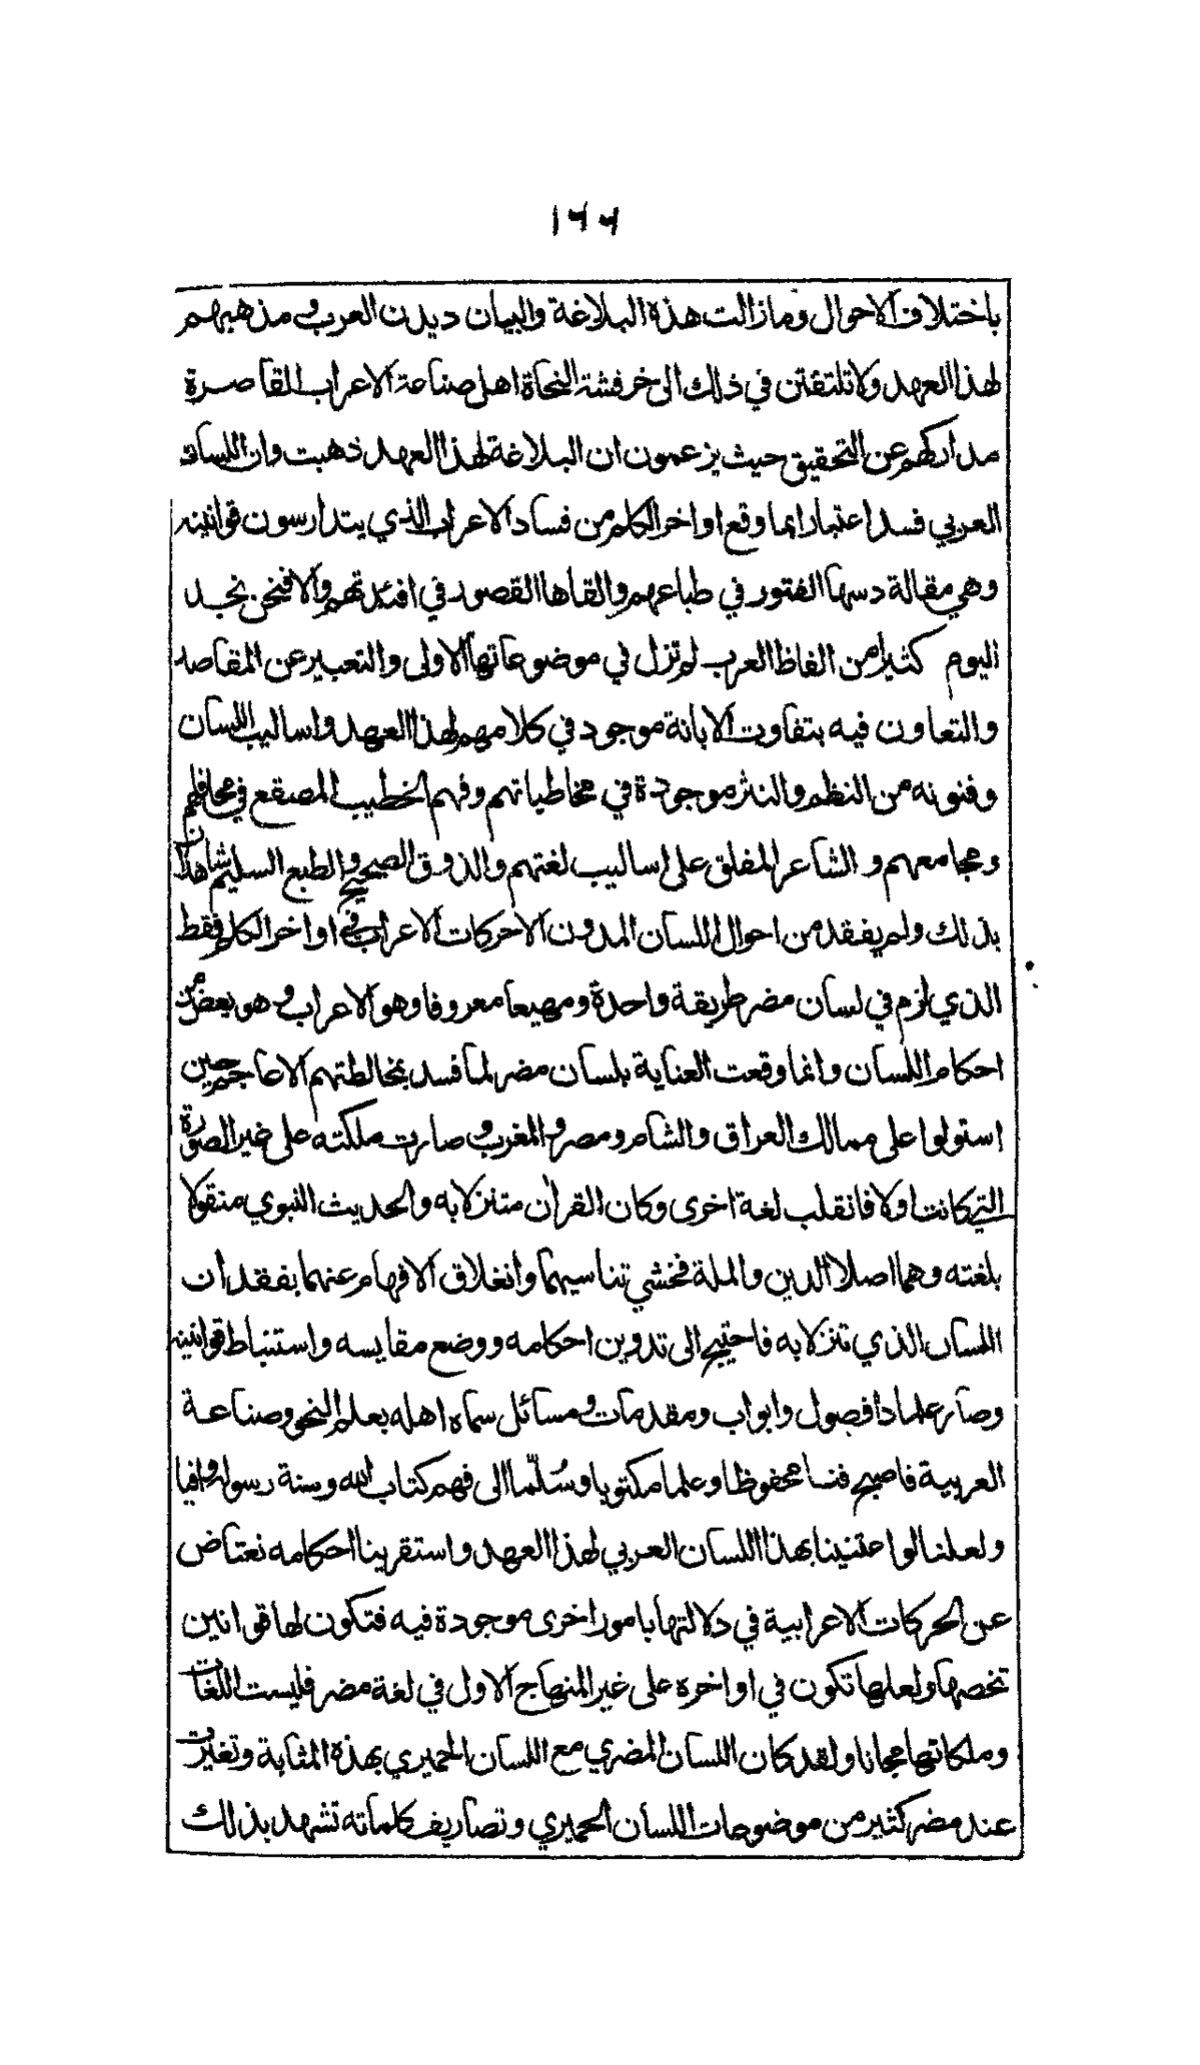 ١٢٢
باختلاف الاحوال وما زالت هذه البلاغة والبيان ديدن العرب ومذهبهم
لهذا العهد ولا تلتفتن في ذلك الى خرفشة النحاة اهل صناعة الاعراب القاصرة
مداركهم عن التحقيق حيث يزعمون ان البلاغة لهذا العهد ذهبت وان اللسان
العربي فسد اعتبارا بما وقع اواخر الكلم من فساد الاعراب الذي يتدارسون قوانينه
وهي مقالة دسها الفتور في طباعهم والقاها القصور في افئدتهم والا فنحن نجد
اليوم كثيرا من الفاظ العرب لم تزل في موضوعاتها الاولى والتعبير عن المقاصد
والتعاون فيه بتفاوت الابانة موجود في كلامهم لهذا العهد واساليب اللسان
وفنونه من النظم والنثر موجودة في مخاطباتهم وفهم الخطيب المصقع في محافلهم
ومجامعهم والشاعر المفلق على اساليب لغتهم والذوق الصحيح والطبع السليم شاهدان
بذلك ولم يفقد من احوال اللسان المدون الا حركات الاعراب في اواخر الكلم فقط
الذي لزم في لسان مضر طريقة واحدة ومهيعا معروفا وهو الاعراب وهو بعض من
احكام اللسان وانما وقعت العناية بلسان مضر لما فسد بمخالطتهم الاعاجم حين
استولوا على ممالك العراق والشام ومصر والمغرب وصارت ملكته على غير الصورة
التي كانت اولا فانقلب لغة اخرى وكان القران متنزلا به والحديث النبوي منقولا
بلغته وهما اصلا الدين والملة فخشي تناسيهما وانغلاق الافهام عنهما بفقدان
اللسان الذي تنزلا به فاحتيج الى تدوين احكامه ووضع مقايسه واستنباط قوانينه
وصار علما ذا فصول وابواب ومقدمات ومسائل سماه اهله بعلم النحو وصناعة
العربية فاصبح فنا محفوظا وعلما مكتوبا وسُلّما الى فهم كتاب الله وسنة رسوله وافيا
ولعلنا لو اعتنينا بهذا اللسان العربي لهذا العهد واستقرينا احكامه نعتاض
عن الحركات الاعرابية في دلالتها بامور اخرى موجودة فيه فتكون لها قوانين
تخصها ولعلها تكون في اواخره على غير المنهاج الاول في لغة مضر فليست اللغات
وملكاتها مجانا ولقد كان اللسان المضري مع اللسان الحميري بهذه المثابة وتغيرت
عند مضر كثير من موضوعات اللسان الحميري وتصاريف كلماته تشهد بذلك